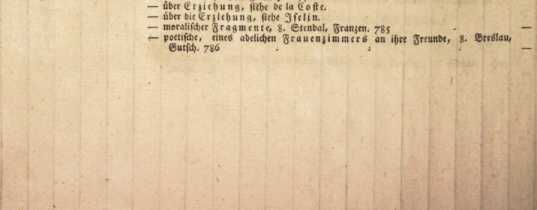 — über Erziehung, siehe de la Coste.
— über die Erziehung, siehe Iselin.
— moralischer Fragmente, 8. Stendal, Franzen. 785
— poetische, eines adelichen Frauenzimmers an ihre Freunde, 8. Breslau,
Gutsch. 786